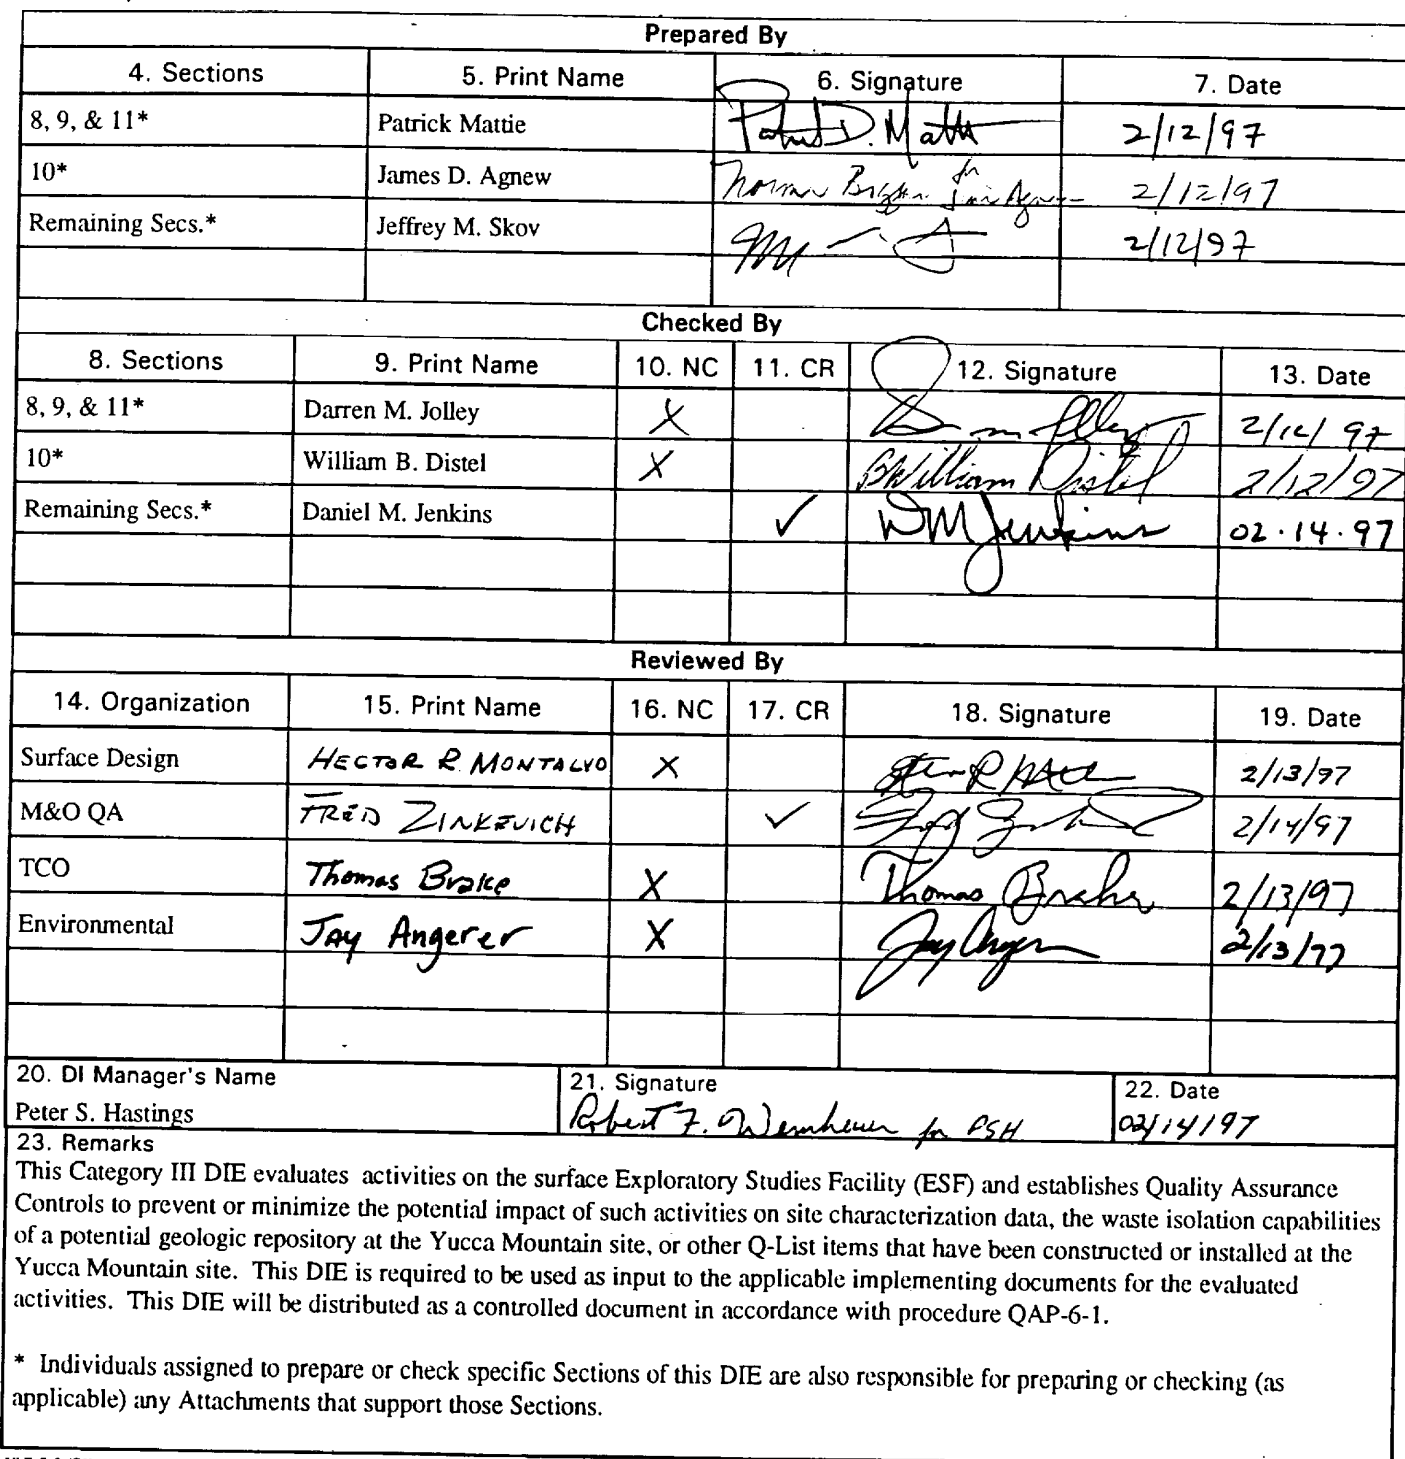 Prepared By
4. Sections 5. Print Name 6. Signature 7. Date
8, 9, & 11* Patrick Mattie Patrick D. Mattie 2/12/97
10* James D. Agnew Norman for Jim Agnew 2/12/97
Remaining Secs.* Jeffrey M. Skov 2/12/97
Checked By
8. Sections 9. Print Name 10. NC 11. CR 12. Signature 13. Date
8, 9, & 11* Darren M. Jolley X 97
10* William B. Distel X William Distel 2/12/97
Remaining Secs.* Daniel M. Jenkins ✓ DMJenkins 02.14.97
Reviewed By
14. Organization 15. Print Name 16. NC 17. CR 18. Signature 19. Date
Surface Design HECTOR R. MONTALVO X 2/13/97
M&O QA FRED ZINKEVICH ✓ 2/14/97
TCO Thomas Brake X Thomas Brake 2/13/97
Environmental JAY Angerer X Jay Angerer 2/13/97
20. DI Manager's Name 21. Signature 22. Date
Peter S. Hastings Robert F. Wemheuer for PSH 02/14/97
23. Remarks
This Category III DIE evaluates activities on the surface Exploratory Studies Facility (ESF) and establishes Quality Assurance
Controls to prevent or minimize the potential impact of such activities on site characterization data, the waste isolation capabilities
of a potential geologic repository at the Yucca Mountain site, or other Q-List items that have been constructed or installed at the
Yucca Mountain site. This DIE is required to be used as input to the applicable implementing documents for the evaluated
activities. This DIE will be distributed as a controlled document in accordance with procedure QAP-6-1.
* Individuals assigned to prepare or check specific Sections of this DIE are also responsible for preparing or checking (as
applicable) any Attachments that support those Sections.